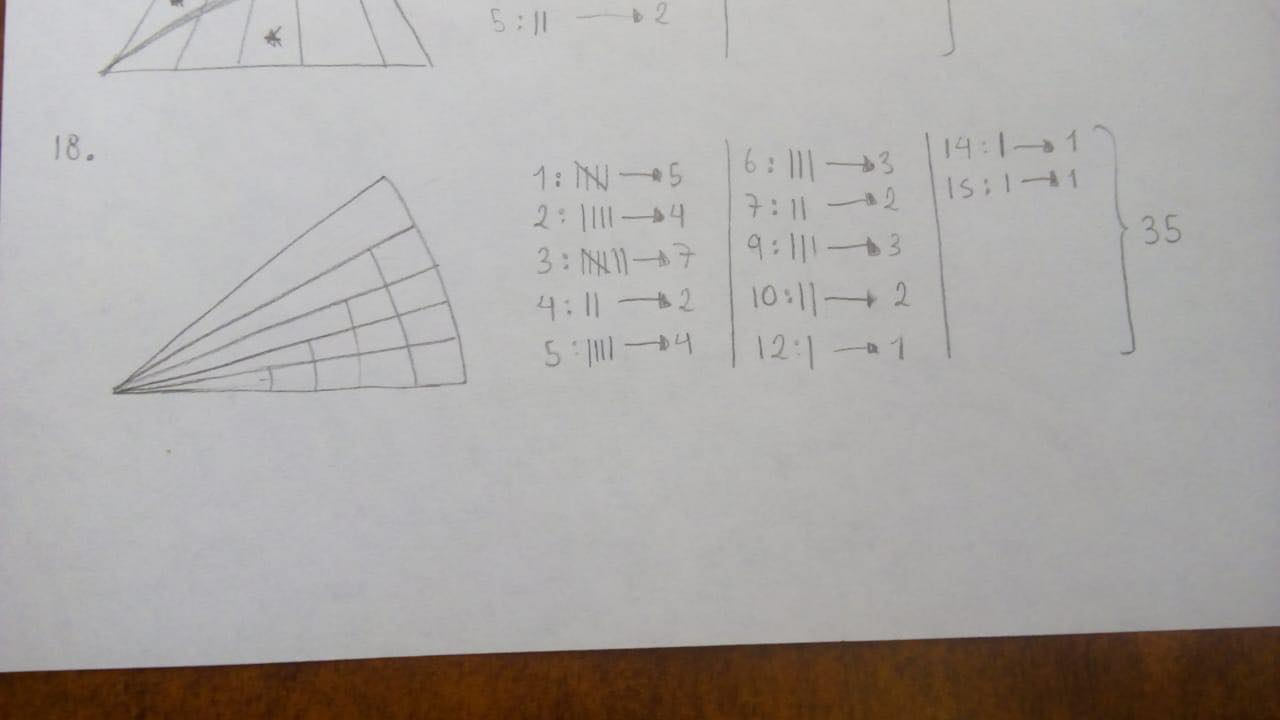 5 : || → 2
18.
1 : 𝍸 → 5
2 : |||| → 4
3 : 𝍸|| → 7
4 : || → 2
5 : |||| → 4
6 : ||| → 3
7 : || → 2
9 : ||| → 3
10 : || → 2
12 : | → 1
14 : | → 1
15 : | → 1
} 35